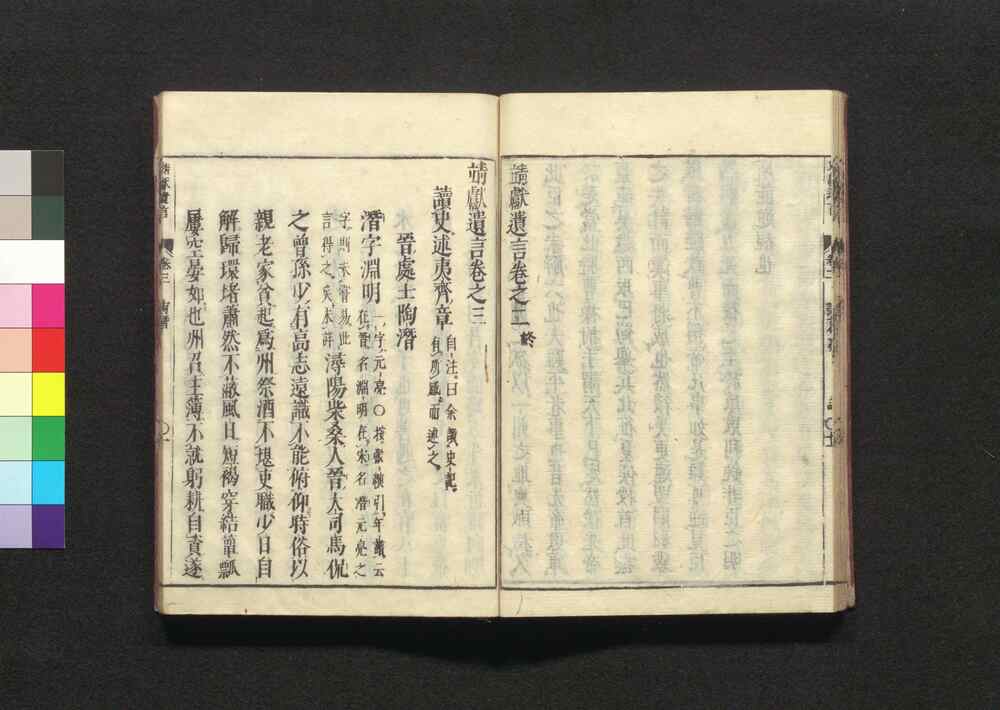 靖獻遺言卷之二 終
靖獻遺言卷之三
讀史述夷齊章 自注曰余讀史記
有所感而述之
晉處士陶潛
潛字淵明 一字元亮〇按張縯引年譜云
在晉名淵明在宋名潛元亮之
字則未嘗易此
言得之矣本許
潯陽柴桑人晉大司馬侃
之曾孫少有高志遠識不能俯仰時俗以
親老家貧起爲州祭酒不堪吏職少日自
解歸環堵蕭然不蔽風日短褐穿結簞瓢
屢空晏如也州召主簿不就躬耕自資遂
靖獻遺言
卷三